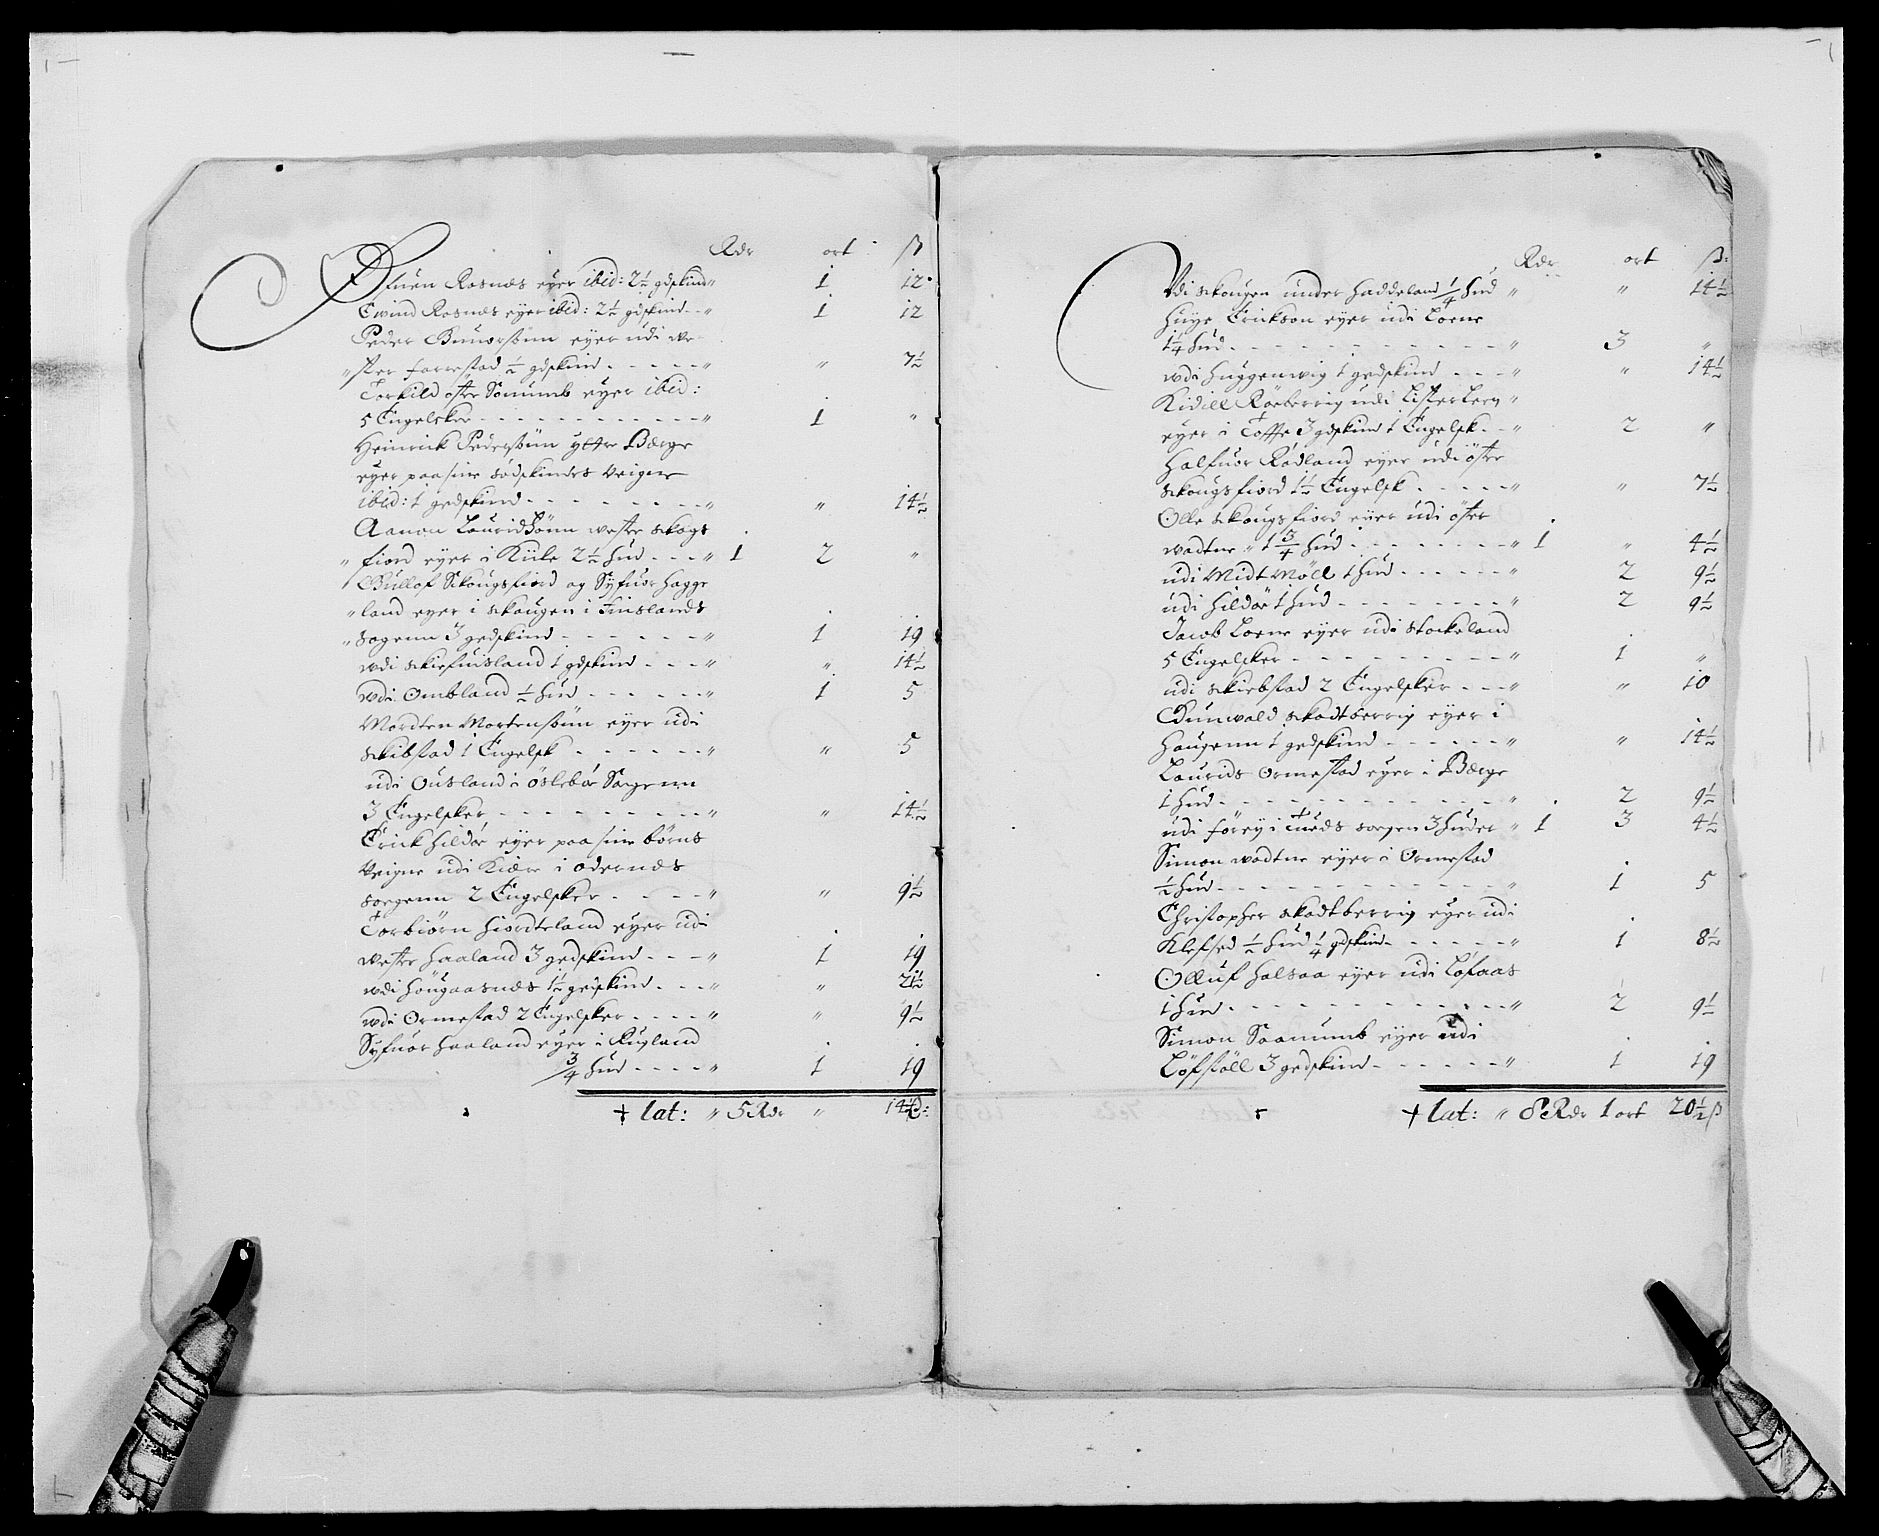 Rdr ort ß
Ofuen Rosnæs eyer ibid: 2½ gdskind " 1 12
Eivind Rosnæs eyer ibid: 2½ gdskind - - " 1 12
Peder Gunorsøun eyer udi ve-
" ster farrestad ½ gdskind - - - - - " " 7½
Torkild øfre Sonumb eyer ibid:
5 Engelsker - - - - - - - - - - " 1 "
Heinrich Pedersøun ytre Berge
eyer paa sine Sødskindes veigne
ibid: 1 gedskind - - - - - - " " 14½
Aanon Lauridsøun vestre Skogs
" fiord eyer i Kiile 2½ hud - - - " 1 2 "
Gullof Skougsfiord og Syfuor Hagge
" land eyer i Skougen i Finslands
" Sogenn 3 gedskind - - - - - - " 1 19
udi Skiefuisland 1 gdskind - - - " " 14½
vdi Ombland ½ hud - - - - - - " 1 5
Mordten Mortensøun eyer udi
Skibstad 1 Engelsk - - - - - - " " 5
udi Ousland i Øslebøe Sogenn
3 Engelsker - - - - - - - - - " " 14½
Erick Hildøe eyer paa sine børns
Veigne udi Kiære i Odernæs
Sogenn 2 Engelsker - - - - - " " 9½
Torbiørn Hiordteland eyer udi
vestre Haaland 3 gedskind - - - " 1 19
vdi Høugaasnæs 1½ gedskind - - - " " 21½
vdi Ormestad 2 Engelsker - - - - " " 9½
Syfuor Haaland eyer i Rugland
¾ hud - - - - " 1 19
+ lat: " 5 Rdr " 14½ ß:
Rdr ort ß:
Vdi Skougen under Haddeland ¼ hud " " 14½
Huye Erickson eyer udi Loene
1¼ hud - - - - - - - - - - - " 3 "
vdi Huggenvig 1 gedskind - - - " " 14½
Kidill Røeberrig udi Listerleen "
eyer i Toffte 3 gdskind 1 Engelsk - - " 2 "
Halfuor Rødland eyer udi øfre
Skougsfiord 1½ Engelsk - - - - - " " 7½
Olle Skougsfiord eyer udi øfre
vadtne " 1¾ hud - - - - - - - " 1 " 4½
udi Midt Møll 1 hud - - - - - - " 2 9½
udi Hildøe 1 hud - - - - - - - - " 2 9½
Jacob Loene eyer udi Stockeland
5 Engelsker - - - - - - - - - " 1 "
udi Skiebstad 2 Engelsker - - - " " 10
Gunvald Skadtberrig eyer i
Haugenn 1 gedskind - - - - - - " " 14½
Laurids Ormestad eyer i Berge
1 hud - - - - - - - - - - - - " 2 9½
udi førey i Tueds Sogen 3 huder " 1 3 4½
Simon vadtne eyer i Ormestad
½ hud - - - - - - - - - - - - " 1 5
Christopher Skadtberrig eyer udi
Klefsed ½ hud ¼ gdskind - - - - - " 1 8½
Olluf Halsaa eyer udi Løfaas
1 hud - - - - - - - - - - - - " 2 9½
Simon Saanumb eyer udi
Løfstøll 3 gedskind - - - - - - " 1 19
+ lat: " 8 Rdr 1 ort 20½ ß